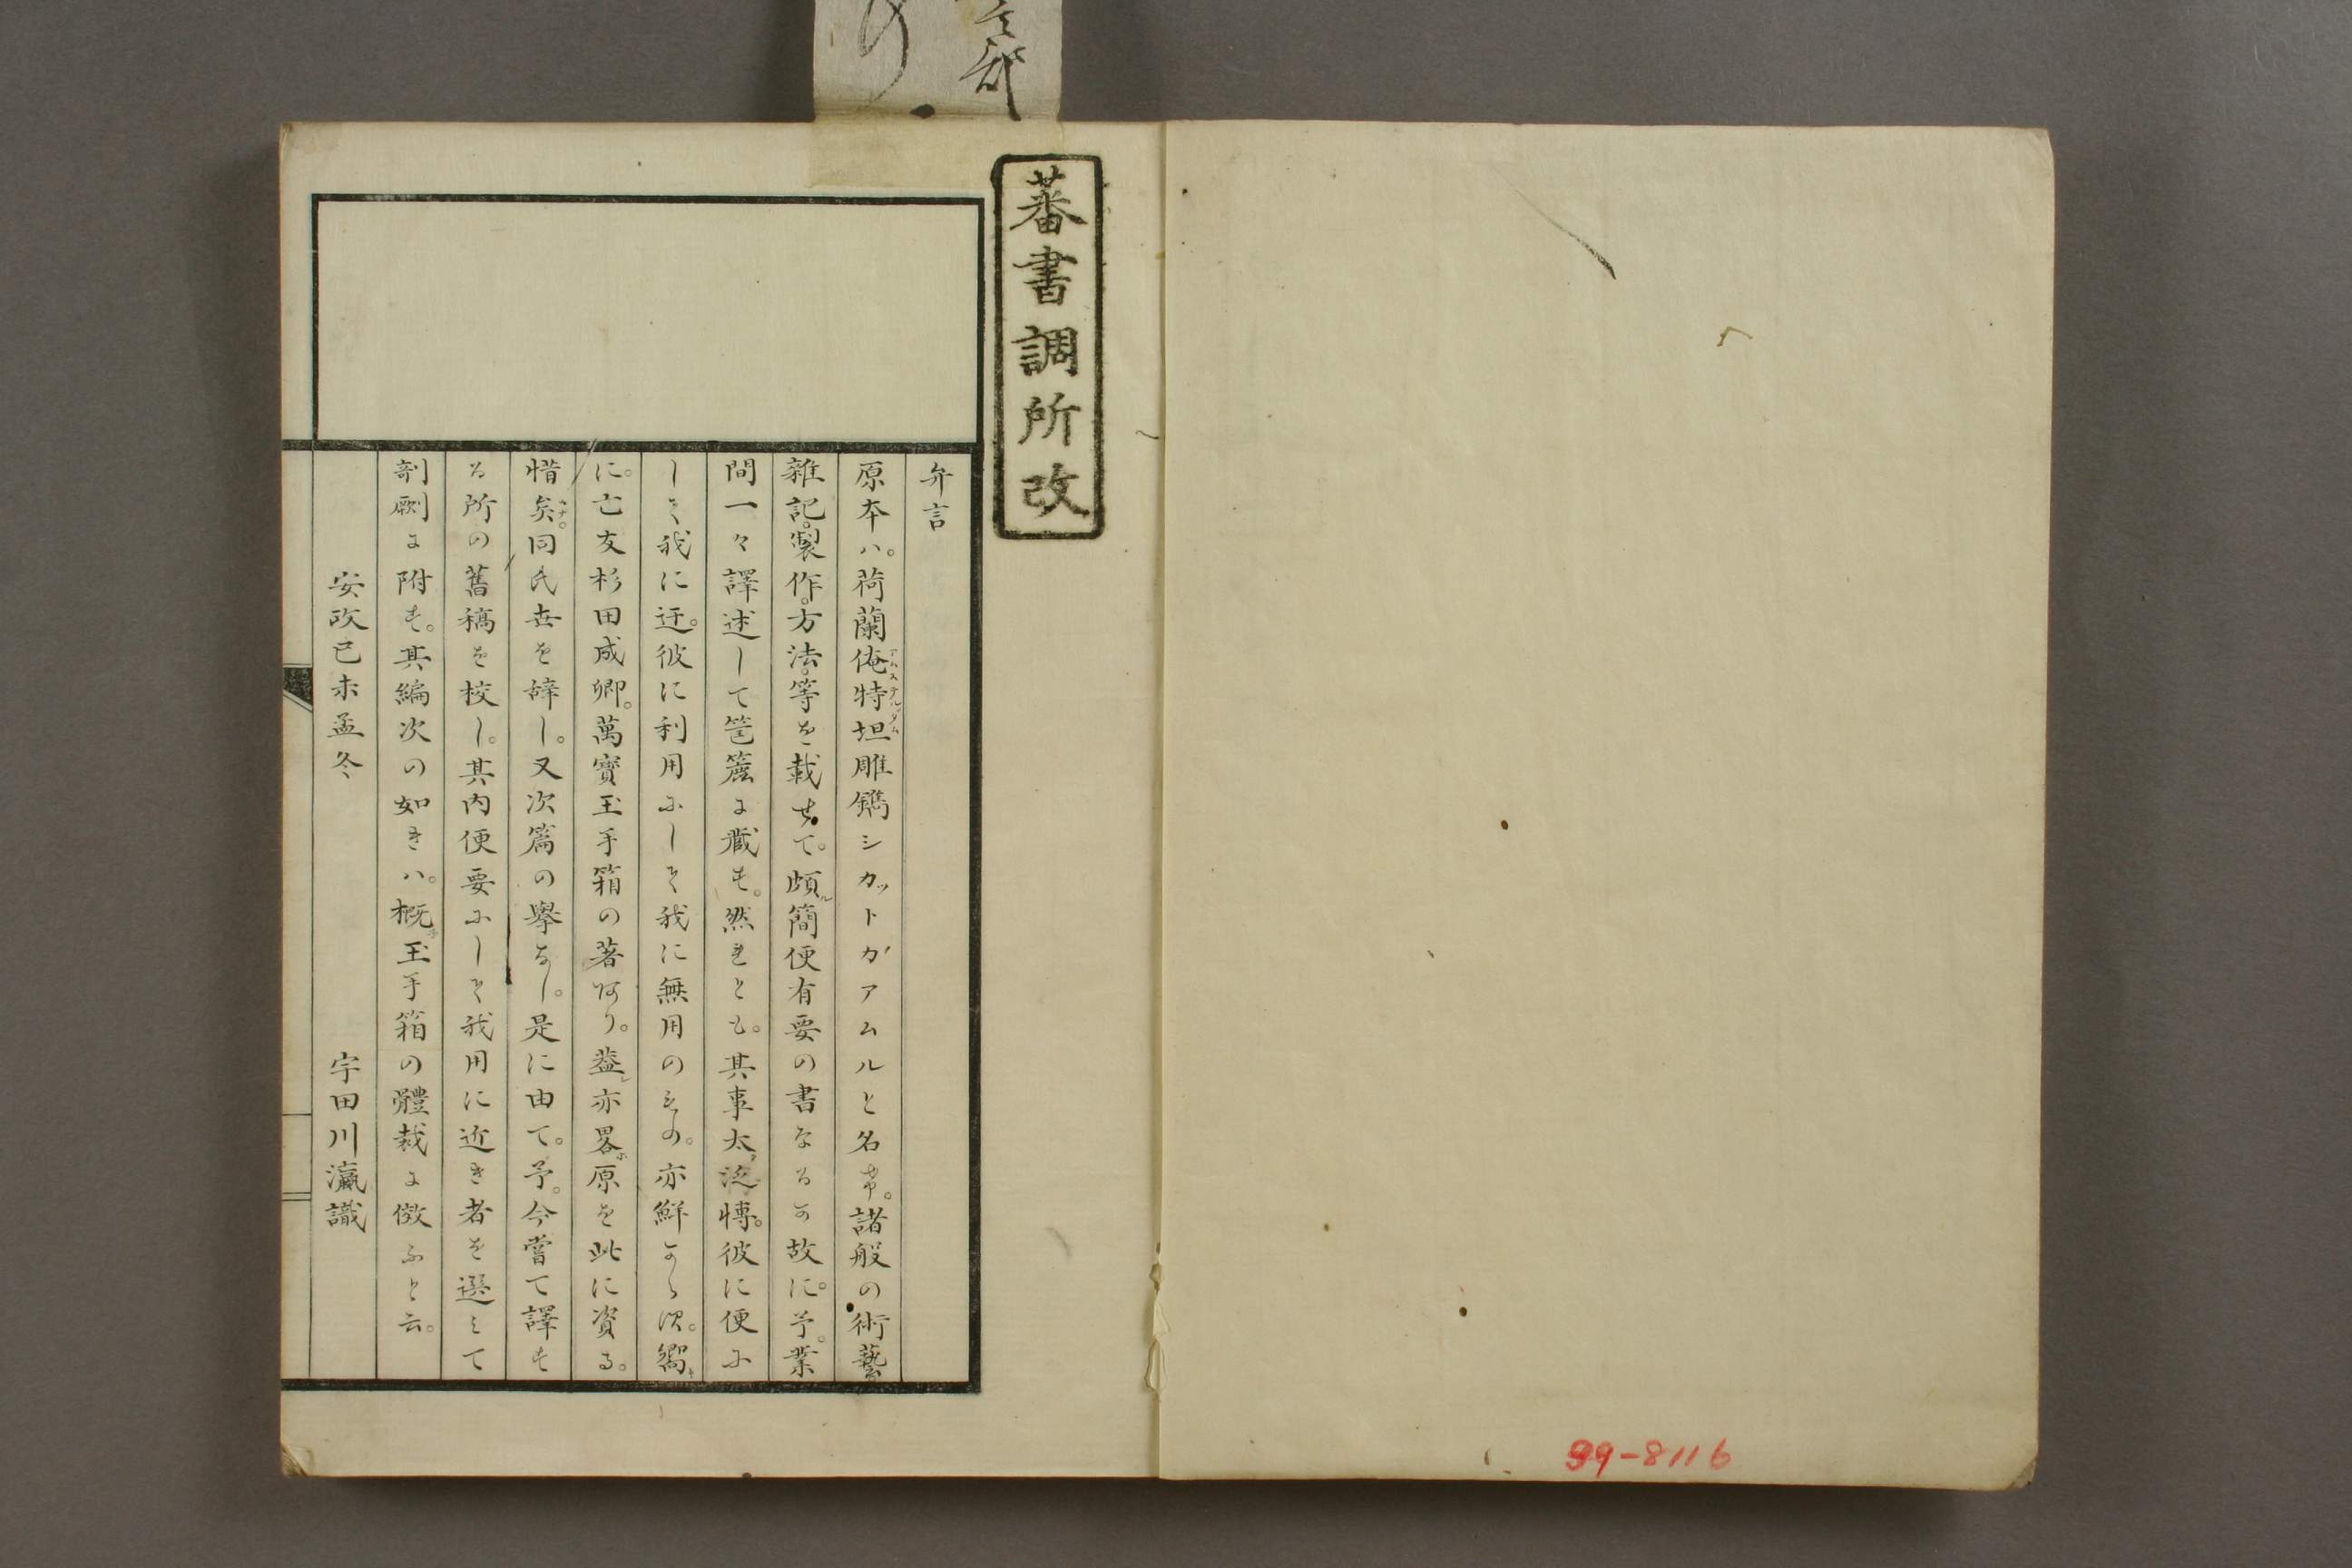 蕃書調所改
弁言
原本ハ。荷蘭俺特坦雕鐫シカットカアムルと名す。諸般の術藝
雜記。製作。方法。等を載せて。頗ル簡便有要の書なるの故に。予。業
間一々譯述して篋簏に藏す。然れとも。其事太タ泛愽。彼に便に
して我に迂。彼に利用にして我に無用のもの。亦鮮からす。嚮キ
に。亡友杉田成卿。萬寶玉手箱の著あり。葢シ亦畧ホ原を此に資る。
惜矣。同氏世を辭し。又次篇の擧なし。是に由て。予。今嘗て譯す
る所の舊稿を校し。其内便要にして我用に近き者を選ミて
剞劂に附す。其編次の如きハ。概子玉手箱の體裁に倣ふと云。
安政己未孟冬
宇田川瀛識
99-8116